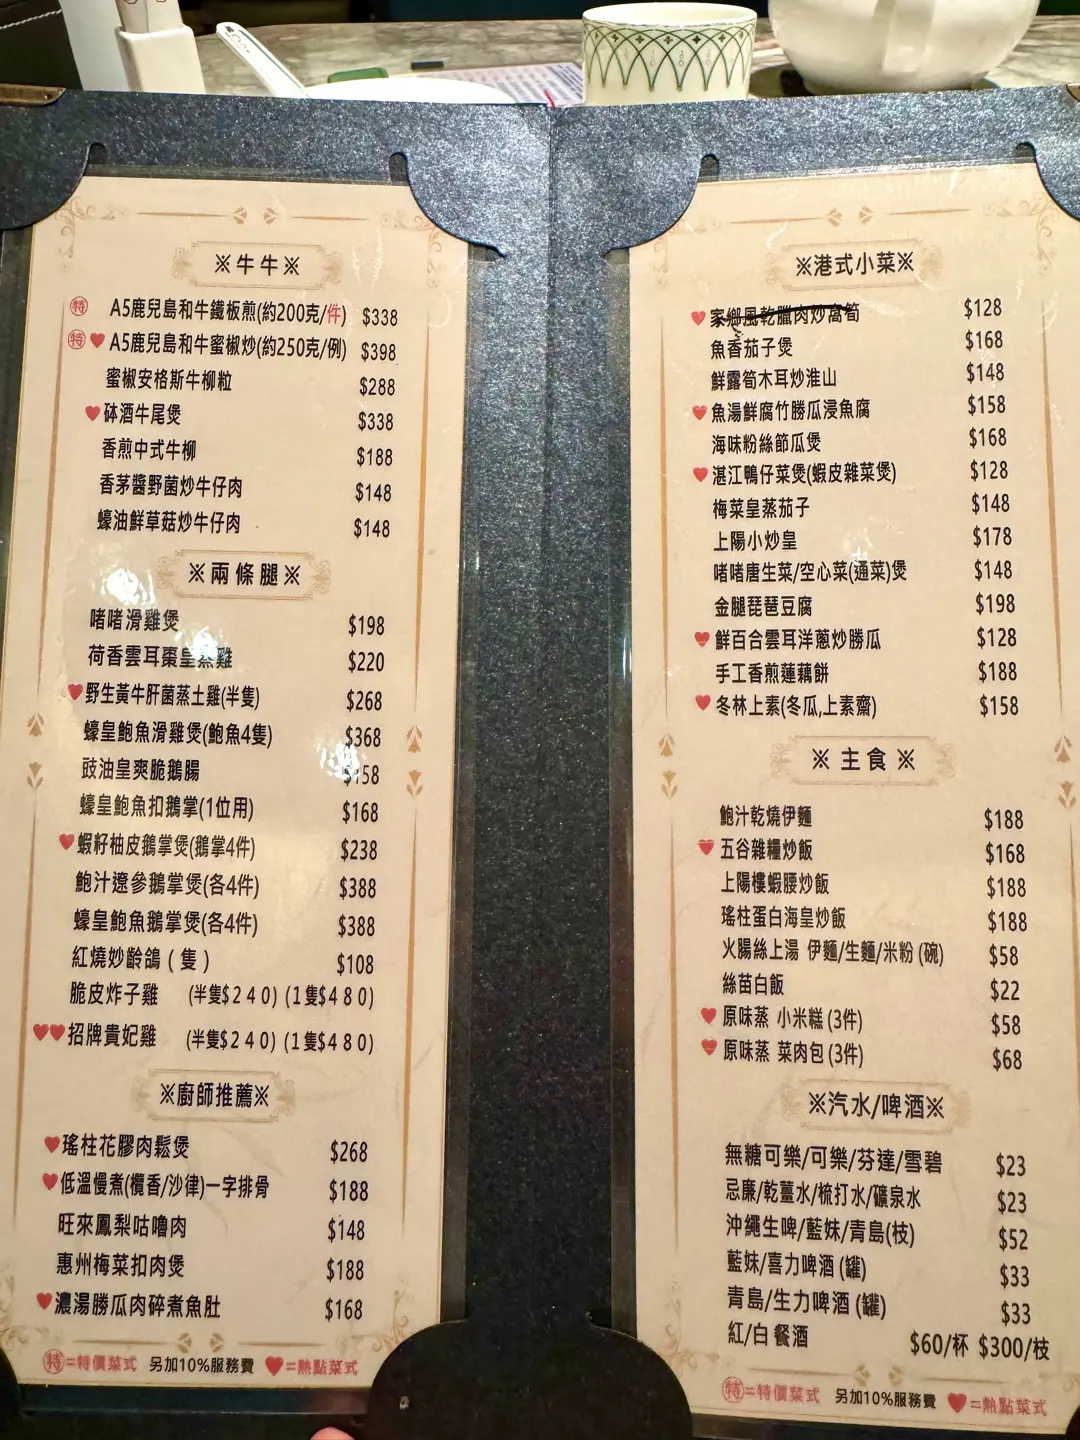 ※牛牛※
特 A5鹿兒島和牛鐵板煎(約200克/件) $338
特 ♥ A5鹿兒島和牛蜜椒炒(約250克/例) $398
蜜椒安格斯牛柳粒 $288
♥ 砵酒牛尾煲 $338
香煎中式牛柳 $188
香茅醬野菌炒牛仔肉 $148
蠔油鮮草菇炒牛仔肉 $148
※兩條腿※
啫啫滑雞煲 $198
荷香雲耳棗皇蒸雞 $220
♥ 野生黃牛肝菌蒸土雞(半隻) $268
蠔皇鮑魚滑雞煲(鮑魚4隻) $368
豉油皇爽脆鵝腸
蠔皇鮑魚扣鵝掌(1位用) $168
♥ 蝦籽柚皮鵝掌煲(鵝掌4件) $238
鮑汁遼參鵝掌煲(各4件) $388
蠔皇鮑魚鵝掌煲(各4件) $388
紅燒妙齡鴿(隻) $108
脆皮炸子雞 (半隻$240) (1隻$480)
♥♥ 招牌貴妃雞 (半隻$240) (1隻$480)
※廚師推薦※
♥ 瑤柱花膠肉鬆煲 $268
♥ 低溫慢煮(欖香/沙律)一字排骨 $188
旺來鳳梨咕嚕肉 $148
惠州梅菜扣肉煲 $188
♥ 濃湯勝瓜肉碎煮魚肚 $168
特=特價菜式 另加10%服務費 ♥=熱點菜式
※港式小菜※
♥ 家鄉風乾臘肉炒萵筍 $128
魚香茄子煲 $168
鮮露筍木耳炒淮山 $148
♥ 魚湯鮮腐竹勝瓜浸魚腐 $158
海味粉絲節瓜煲 $168
♥ 湛江鴨仔菜煲(蝦皮雜菜煲) $128
梅菜皇蒸茄子 $148
上陽小炒皇 $178
啫啫唐生菜/空心菜(通菜)煲 $148
金腿琵琶豆腐 $198
♥ 鮮百合雲耳洋蔥炒勝瓜 $128
手工香煎蓮藕餅 $188
♥ 冬林上素(冬瓜,上素齋) $158
※ 主食 ※
鮑汁乾燒伊麵 $188
♥ 五谷雜糧炒飯 $168
上陽樓蝦腰炒飯 $188
瑤柱蛋白海皇炒飯 $188
火腸絲上湯 伊麵/生麵/米粉 (碗) $58
絲苗白飯 $22
♥ 原味蒸 小米糕 (3件) $58
♥ 原味蒸 菜肉包 (3件) $68
※汽水/啤酒※
無糖可樂/可樂/芬達/雪碧 $23
忌廉/乾薑水/梳打水/礦泉水 $23
沖繩生啤/藍妹/青島(枝) $52
藍妹/喜力啤酒 (罐) $33
青島/生力啤酒 (罐) $33
紅/白 餐酒 $60/杯 $300/枝
特=特價菜式 另加10%服務費 ♥=熱點菜式